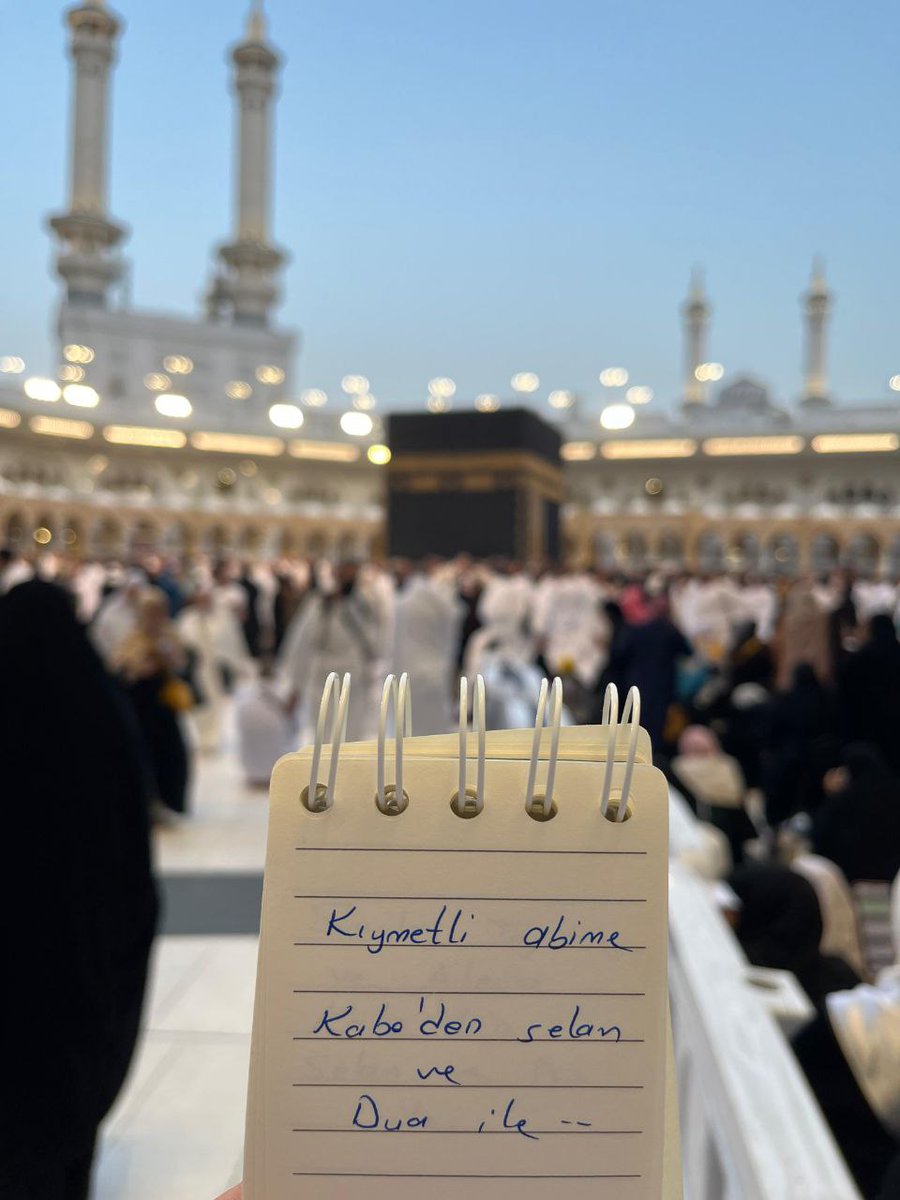 Kıymetli abime
Kabe'den selam
ve
Dua ile --